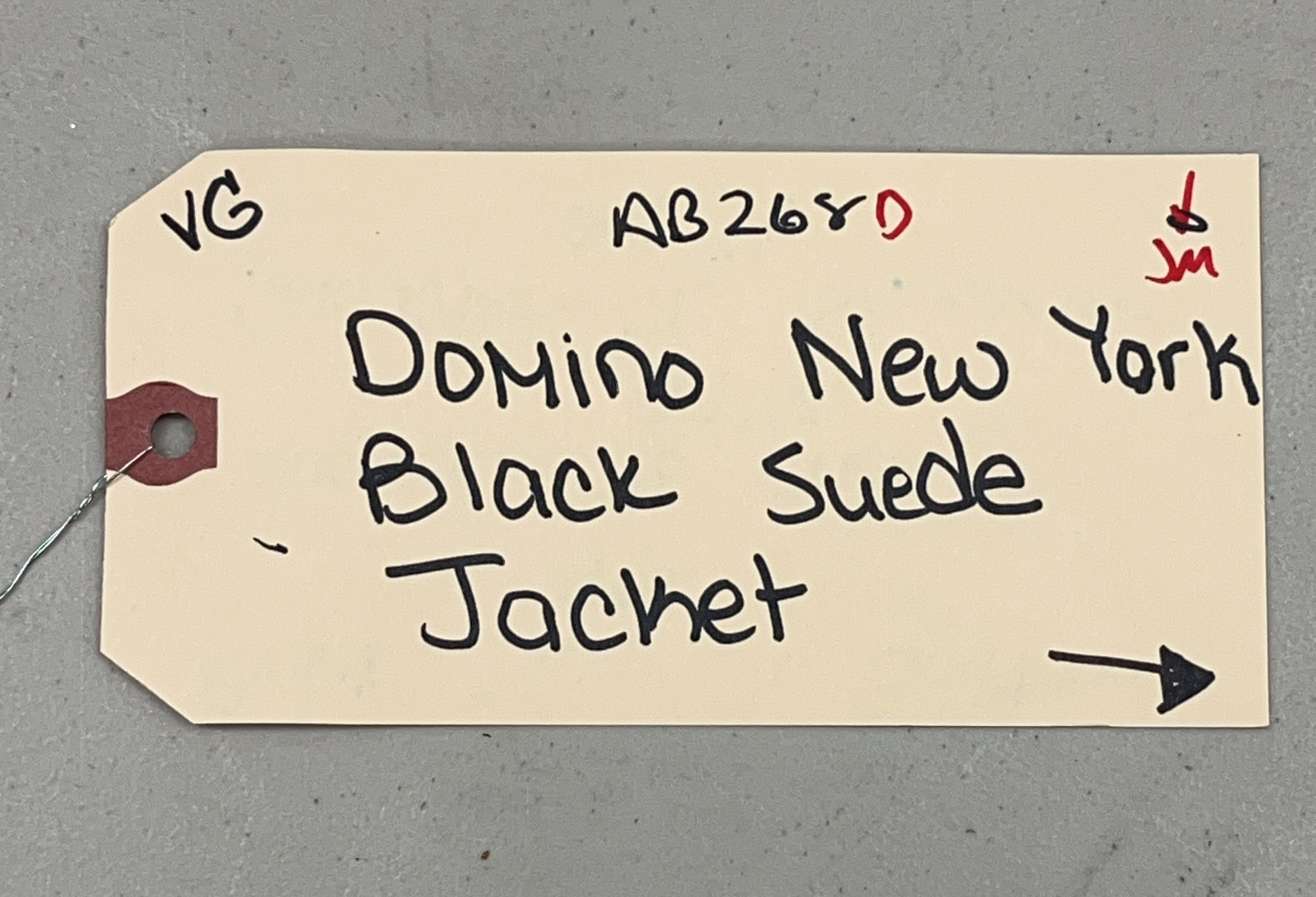 VG AB268D
JM
Domino New York
Black Suede
Jacket